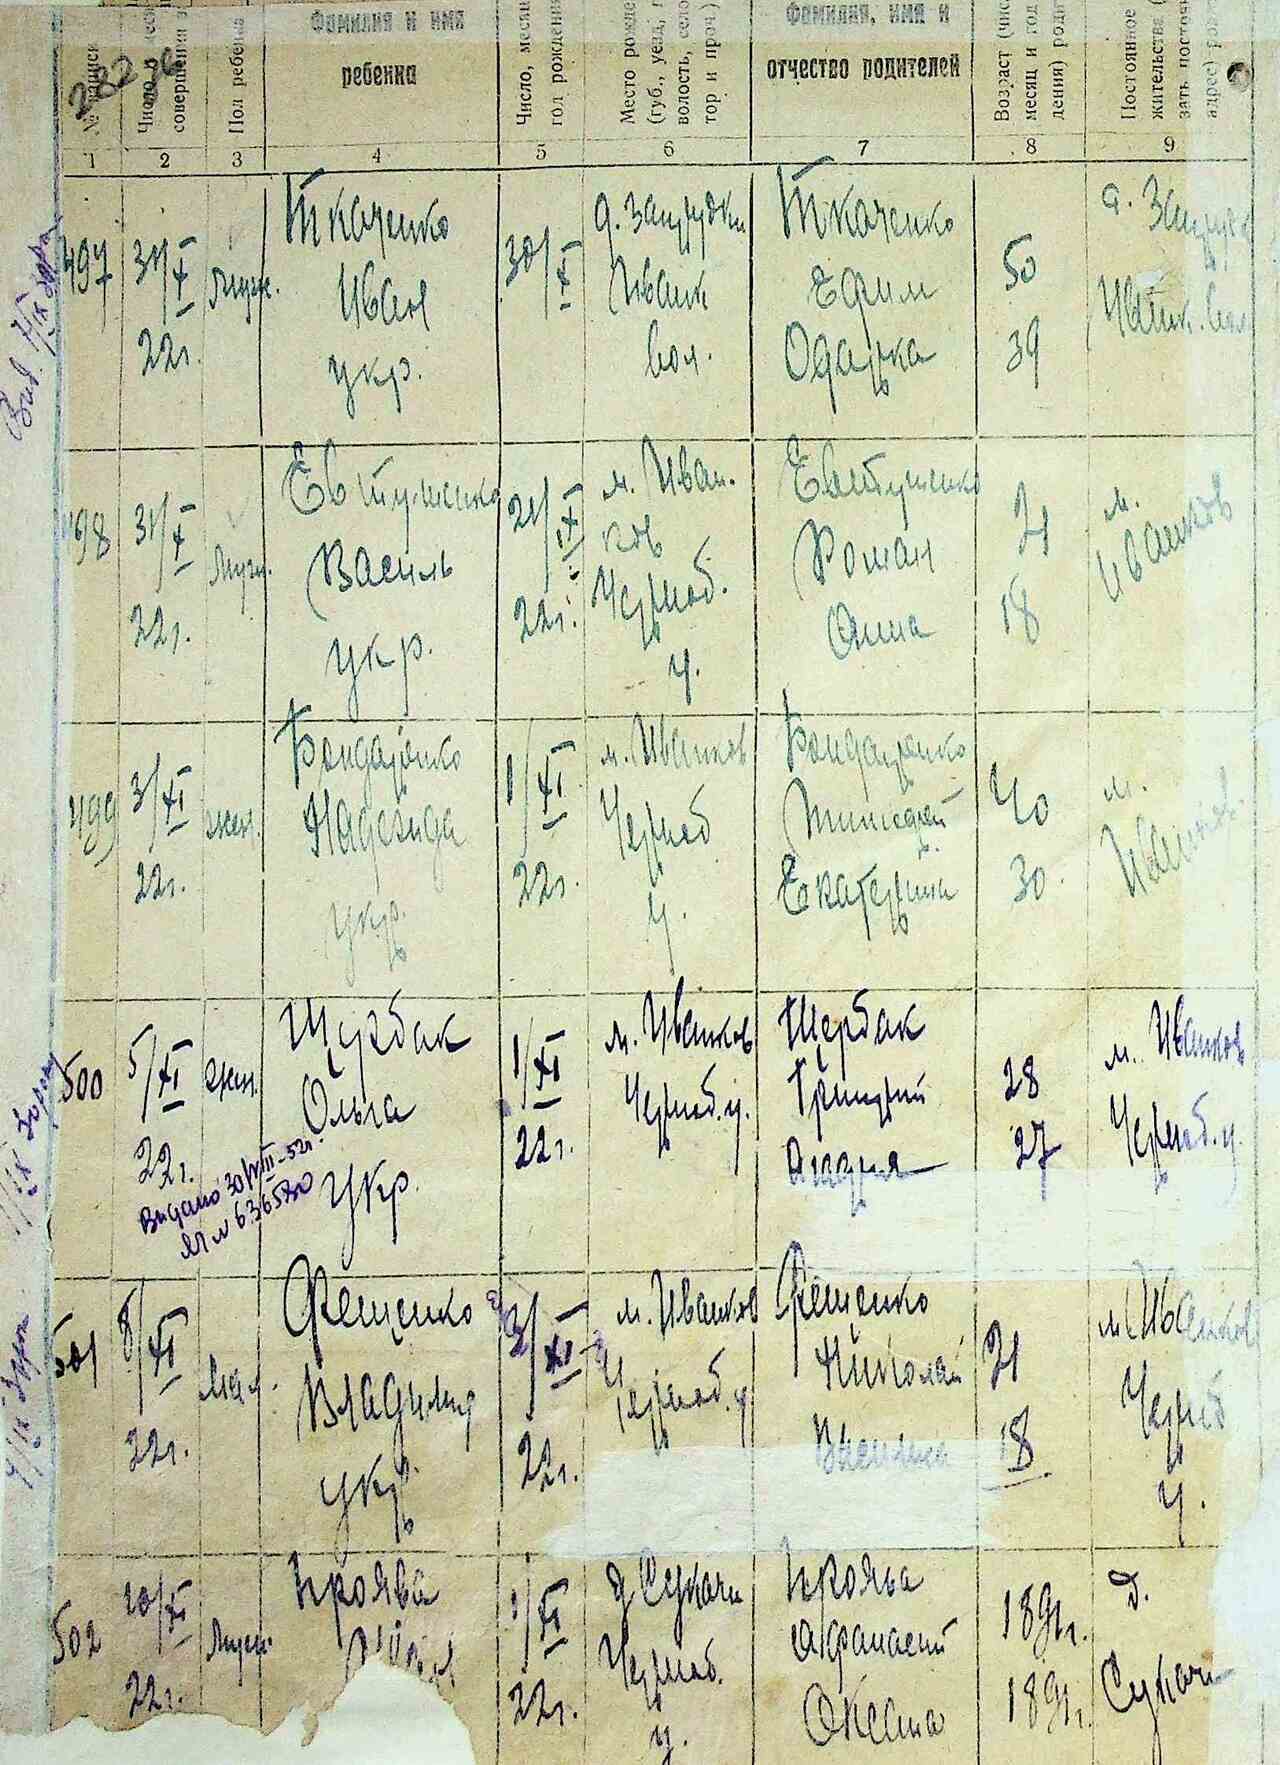 282
№ записи
Число, месяц совершения
Пол ребенка
Фамилия и имя
ребенка
Число, месяц
год рождения
Место рожде
(губ., уезд,
волость, село
тор и проч.)
Фамилия, имя и
отчество родителей
Возраст (чис
месяц и год
дения) роди
Постоянное
жительства (
зать постоян
адрес)
1 2 3 4 5 6 7 8 9
497
31/X
22г.
Муж.
Ткаченко
Иван
укр.
30/X
Иванк
вол.
Ткаченко
Ефим
Одарка
50
39
Иванк. вол.
498
31/X
22г.
Муж.
Евтушенко
Василь
укр.
21/X
22г.
м. Иван.
ков
Черноб.
у.
Евтушенко
Роман
Анна
21
18
м.
Иванков
499
3/XI
22г.
жен.
Бондаренко
Надежда
укр.
1/XI
22г.
м. Иванков
Черноб
у.
Бондаренко
Тимофей
Екатерина
40
30.
м.
Иванков
500
5/XI
22г.
жен.
Щербак
Ольга
укр.
1/XI
22г.
м. Иванков
Черноб. у.
Щербак
Григорий
28
27
м. Иванков
Черноб. у.
Видано 30/VIII-52г.
501
8/XI
22г.
Мал.
Фещенко
Владимир
укр.
3/XI
22г.
м. Иванков
Черноб. у
Фещенко
Николай
21
18
м. Иванков
Черноб
у.
502
10/XI
22г.
Муж.
Кроява
1/XI
22г.
д Сукачи
Черноб.
у.
Кроява
Афанасий
Оксана
189г.
189г.
д.
Сукачи